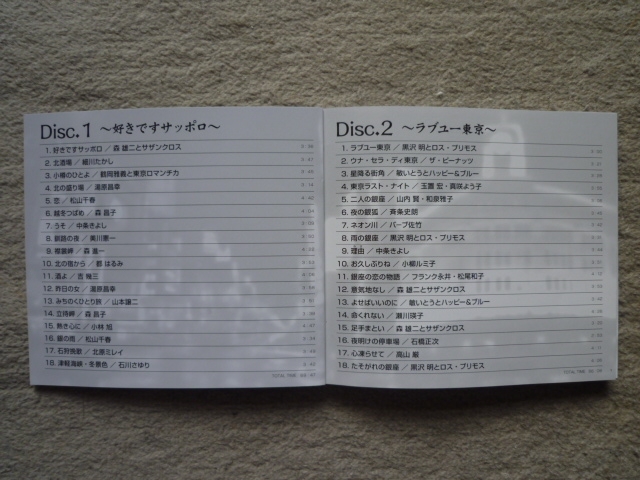 Disc.1 〜好きですサッポロ〜
1. 好きですサッポロ／森 雄二とサザンクロス
2. 北酒場／細川たかし
3. 小樽のひとよ／鶴岡雅義と東京ロマンチカ
4. 北の盛り場／湯原昌幸
5. 恋／松山千春
6. 越冬つばめ／森 昌子
7. うそ／中条きよし
8. 釧路の夜／美川憲一
9. 襟裳岬／森 進一
10. 北の宿から／都 はるみ
11. 酒よ／吉 幾三
12. 昨日の女／湯原昌幸
13. みちのくひとり旅／山本譲二
14. 立待岬／森 昌子
15. 熱き心に／小林 旭
16. 銀の雨／松山千春
17. 石狩挽歌／北原ミレイ
18. 津軽海峡・冬景色／石川さゆり
TOTAL TIME
Disc.2 〜ラブユー東京〜
1. ラブユー東京／黒沢 明とロス・プリモス
2. ウナ・セラ・ディ東京／ザ・ピーナッツ
3. 星降る街角／敏いとうとハッピー&ブルー
4. 東京ラスト・ナイト／玉置 宏・真咲よう子
5. 二人の銀座／山内 賢・和泉雅子
6. 夜の銀狐／斉条史朗
7. ネオン川／バーブ佐竹
8. 雨の銀座／黒沢 明とロス・プリモス
9. 理由／中条きよし
10. お久しぶりね／小柳ルミ子
11. 銀座の恋の物語／フランク永井・松尾和子
12. 意気地なし／森 雄二とサザンクロス
13. よせばいいのに／敏いとうとハッピー&ブルー
14. 命くれない／瀬川瑛子
15. 足手まとい／森 雄二とサザンクロス
16. 夜明けの停車場／石橋正次
17. 心凍らせて／高山 厳
18. たそがれの銀座／黒沢 明とロス・プリモス
TOTAL TIME